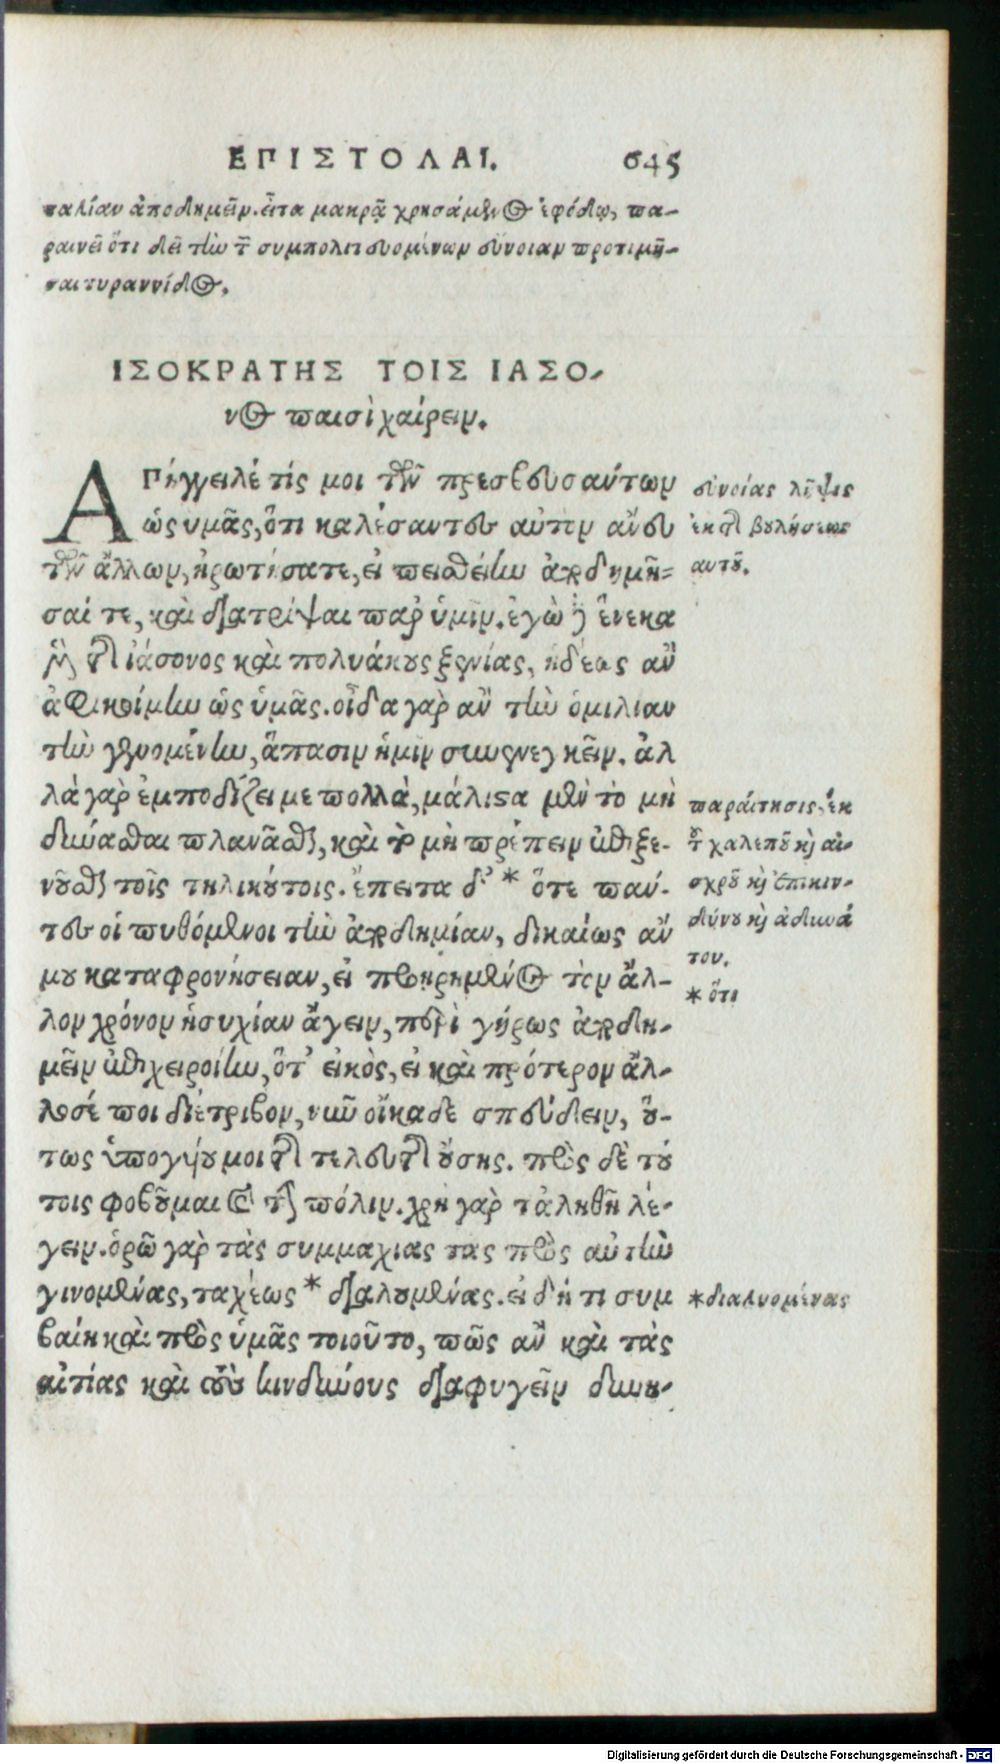 ΕΠΙΣΤΟΛΑΙ. 645
ταλίαν ἀποδημεῖν. εἶτα μακρᾷ χρησάμενος ἐφόδῳ, πα-
ραινεῖ ὅτι δεῖ τὴν τῶν συμπολιτευομένων εὔνοιαν προτιμῆ-
σαι τυραννίδος.
ΙΣΟΚΡΑΤΗΣ ΤΟΙΣ ΙΑΣΟ-
νος παισὶ χαίρειν.
ΑΠήγγειλέ τίς μοι τῶν πρεσβευσάντων
ὡς ὑμᾶς, ὅτι καλέσαντες αὐτὸν ἄνευ
τῶν ἄλλων, ἠρωτήσατε, εἰ πεισθείην ἀποδημῆ-
σαί τε, καὶ διατρίψαι παρ' ὑμῖν. ἐγὼ δὲ ἕνεκα
μὲν τῆς ἰάσονος καὶ πολυάκους ξενίας, ἡδέως ἂν
ἀφικοίμην ὡς ὑμᾶς. οἶδα γὰρ ἂν τὴν ὁμιλίαν
τὴν γενομένην, ἅπασιν ἡμῖν συνενεγκεῖν. ἀλ
λὰ γὰρ ἐμποδίζει με πολλὰ, μάλιστα μὲν τὸ μὴ
δύνασθαι πλανᾶσθαι, καὶ τὸ μὴ πρέπειν ἐπιξε-
νοῦσθαι τοῖς τηλικούτοις. ἔπειτα δ' * ὅτε πάν-
τες οἱ πυθόμενοι τὴν ἀποδημίαν, δικαίως ἄν
μου καταφρονήσειαν, εἰ προῃρημένος τὸν ἄλ-
λον χρόνον ἡσυχίαν ἄγειν, περὶ γήρως ἀποδη-
μεῖν ἐπιχειροίην, ὅτ' εἰκὸς, εἰ καὶ πρότερον ἄλ-
λοσέ ποι διέτριβον, νῦν οἴκαδε σπεύδειν, οὕ-
τως ὑπογύου μοι τῆς τελευτῆς οὔσης. πρὸς δὲ τού
τοις φοβοῦμαι καὶ τὴν πόλιν. χρὴ γὰρ τἀληθῆ λέ-
γειν. ὁρῶ γὰρ τὰς συμμαχίας τὰς πρὸς αὐτὴν
γινομένας, ταχέως * διαλουμένας. εἰ δή τι συμ
βαίη καὶ πρὸς ὑμᾶς τοιοῦτο, πῶς ἂν καὶ τὰς
αἰτίας καὶ τοὺς κινδύνους διαφυγεῖν δυνη-
εὐνοίας λῆψις
ἐκ τῆς βουλήσεως
αὐτοῦ.
παραίτησις, ἐκ
τοῦ χαλεποῦ καὶ αἰ-
σχροῦ καὶ ἐπικιν-
δύνου καὶ ἀδυνά
του.
* ὅτι
* διαλυομένας
Digitalisierung gefördert durch die Deutsche Forschungsgemeinschaft - DFG